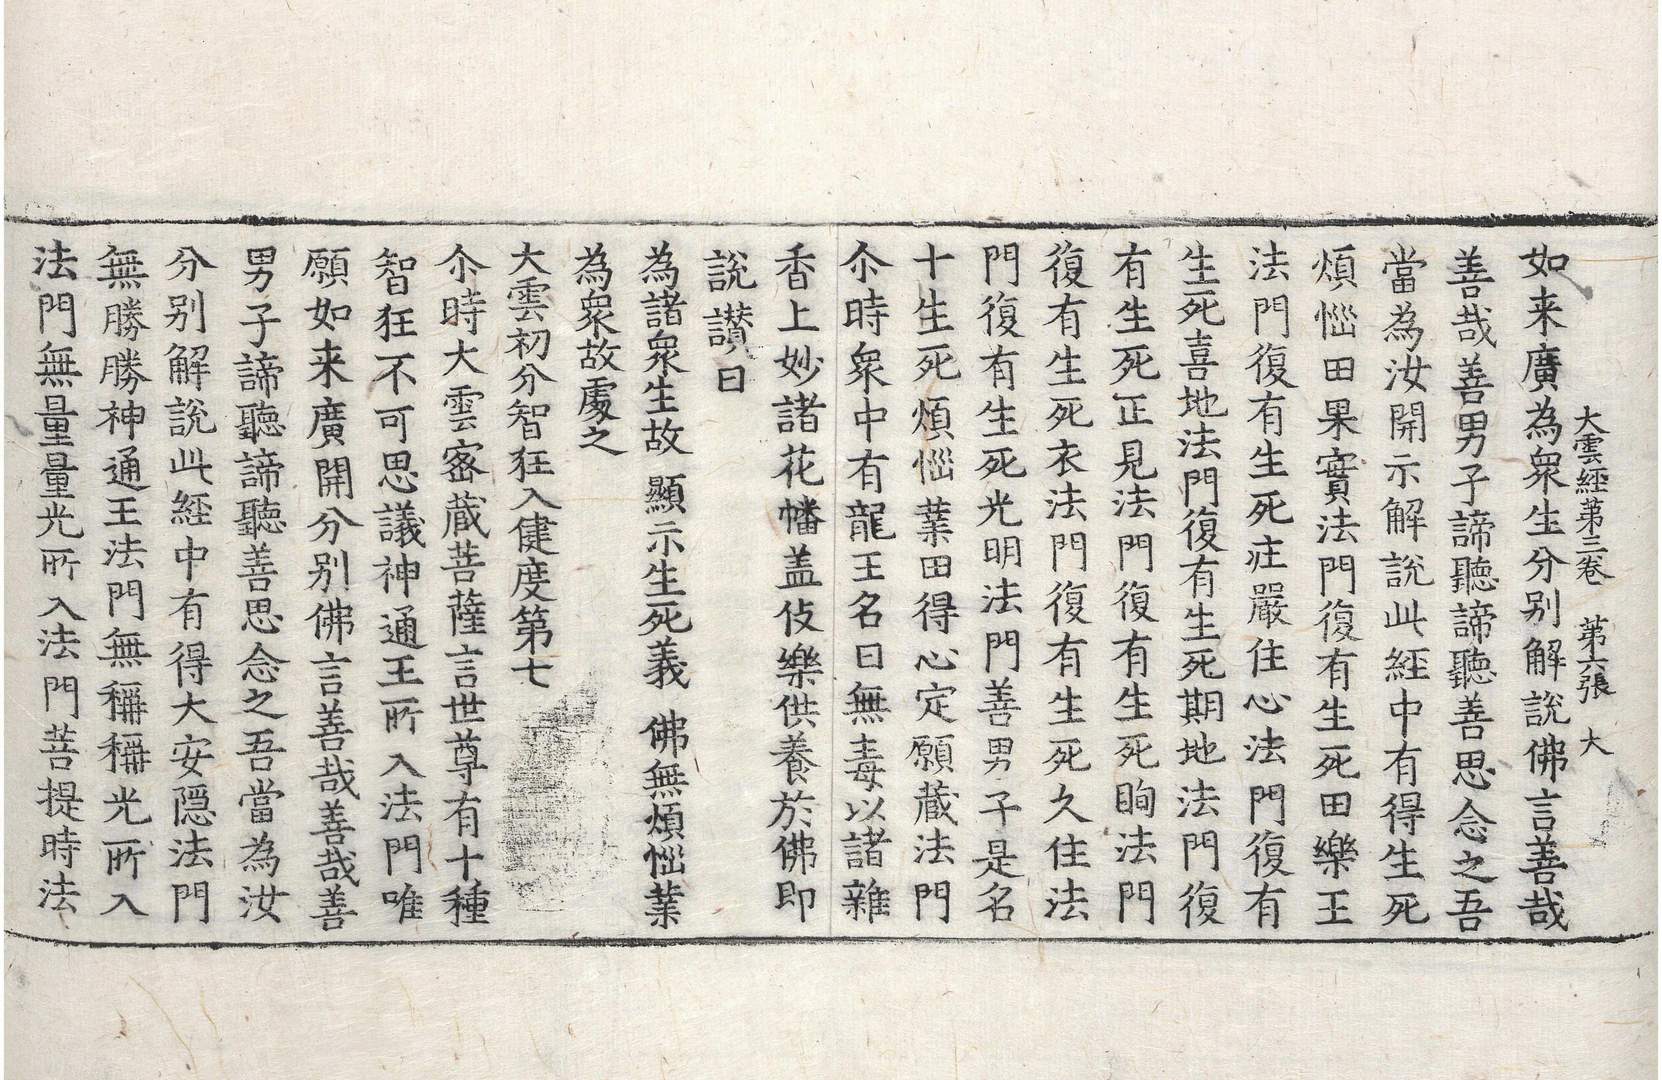 大雲經第三卷　第六張　大
如来廣為衆生分别解說佛言善哉
善哉善男子諦聽諦聽善思念之吾
當為汝開示解說此經中有得生死
煩惱田果實法門復有生死田樂王
法門復有生死庄嚴住心法門復有
生死喜地法門復有生死期地法門復
有生死正見法門復有生死眴法門
復有生死衣法門復有生死久住法
門復有生死光明法門善男子是名
十生死煩惱業田得心定願蔵法門
尒時衆中有龍王名曰無毒以諸雜
香上妙諸花幡盖伎樂供養於佛即
說讃曰
為諸衆生故　顯示生死義　佛無煩惱業
為衆故處之
大雲初分智狂入健度第七
尒時大雲密蔵菩薩言世尊有十種
智狂不可思議神通王所入法門唯
願如来廣開分别佛言善哉善哉善
男子諦聽諦聽善思念之吾當為汝
分别解說此経中有得大安隱法門
無勝勝神通王法門無稱稱光所入
法門無量量光所入法門菩提時法